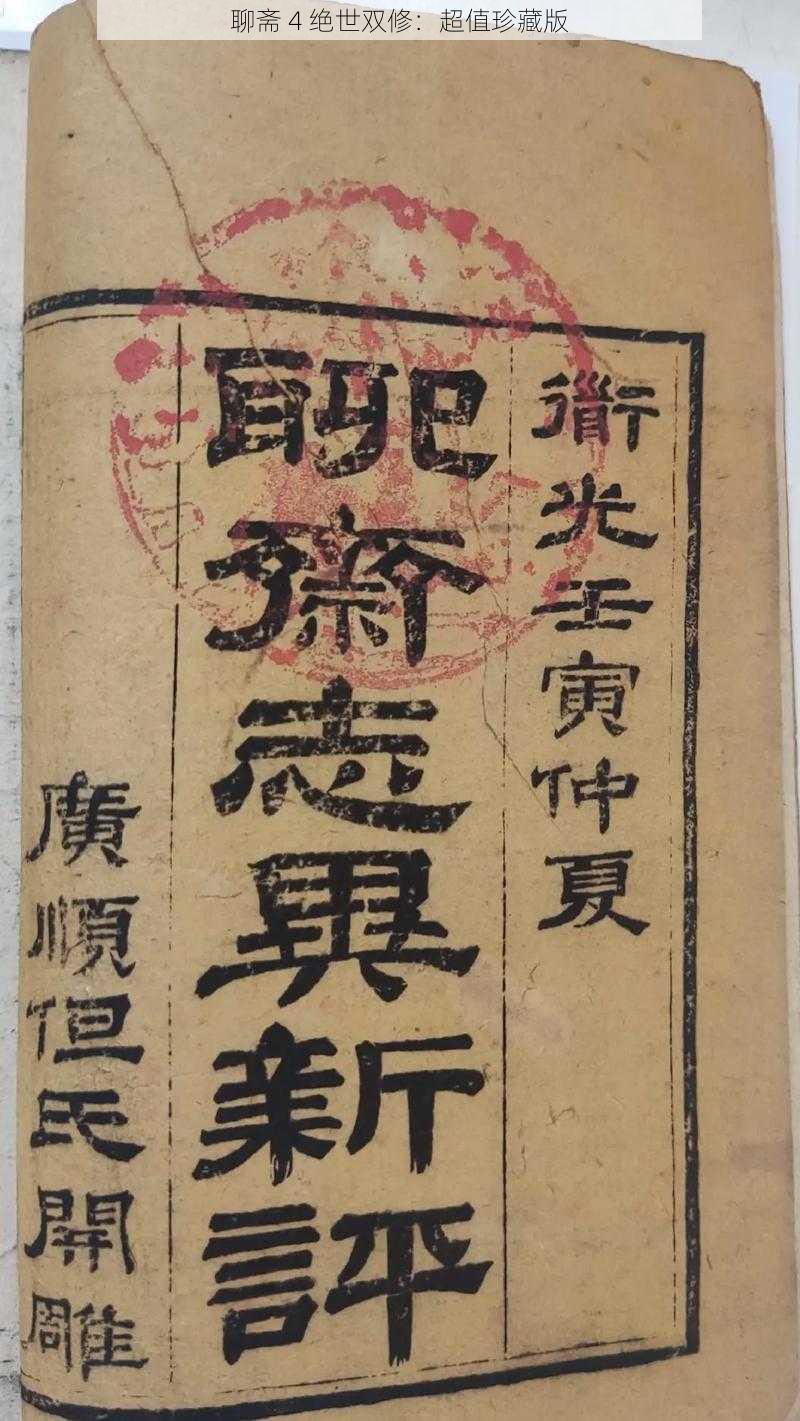 聊斋 4 绝世双修：超值珍藏版
衜光壬寅仲夏
聊齋志異新評
廣順但氏開雕